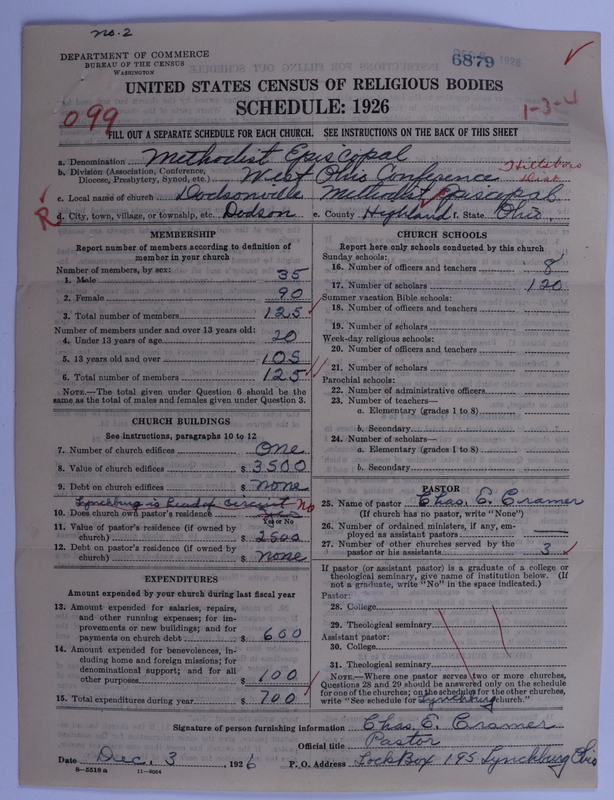 no. 2
DEPARTMENT OF COMMERCE
BUREAU OF THE CENSUS
WASHINGTON
6879
1926
UNITED STATES CENSUS OF RELIGIOUS BODIES
SCHEDULE: 1926
1-3-4
099
FILL OUT A SEPARATE SCHEDULE FOR EACH CHURCH. SEE INSTRUCTIONS ON THE BACK OF THIS SHEET
a. Denomination Methodist Episcopal
b. Division (Association, Conference, Diocese, Presbytery, Synod, etc.) West Ohio Conference Hillsboro Dist.
c. Local name of church Dodsonville Methodist Episcopal
R
d. City, town, village, or township, etc. Dodson e. County Highland f. State Ohio
MEMBERSHIP
Report number of members according to definition of
member in your church
Number of members, by sex:
1. Male 35
2. Female 90
3. Total number of members 125
Number of members under and over 13 years old:
4. Under 13 years of age 20
5. 13 years old and over 105
6. Total number of members 125
NOTE.—The total given under Question 6 should be the
same as the total of males and females given under Question 3.
CHURCH BUILDINGS
See instructions, paragraphs 10 to 12
7. Number of church edifices One
8. Value of church edifices $ 3500
9. Debt on church edifices $ none
Lynchburg is head of circuit no
10. Does church own pastor's residence
Yes or No
11. Value of pastor's residence (if owned by
church) $ 2500
12. Debt on pastor's residence (if owned by
church) $ none
EXPENDITURES
Amount expended by your church during last fiscal year
13. Amount expended for salaries, repairs,
and other running expenses; for im-
provements or new buildings; and for
payments on church debt $ 600
14. Amount expended for benevolences, in-
cluding home and foreign missions; for
denominational support; and for all
other purposes $ 100
15. Total expenditures during year $ 700
CHURCH SCHOOLS
Report here only schools conducted by this church
Sunday schools:
16. Number of officers and teachers 8
17. Number of scholars 120
Summer vacation Bible schools:
18. Number of officers and teachers
19. Number of scholars
Week-day religious schools:
20. Number of officers and teachers
21. Number of scholars
Parochial schools:
22. Number of administrative officers
23. Number of teachers—
a. Elementary (grades 1 to 8)
b. Secondary
24. Number of scholars—
a. Elementary (grades 1 to 8)
b. Secondary
PASTOR
25. Name of pastor Chas. E. Cramer
(If church has no pastor, write "None")
26. Number of ordained ministers, if any, em-
ployed as assistant pastors —
27. Number of other churches served by the
pastor or his assistants 3
If pastor (or assistant pastor) is a graduate of a college or
theological seminary, give name of institution below. (If
not a graduate, write "No" in the space indicated.)
Pastor:
28. College
29. Theological seminary
Assistant pastor:
30. College
31. Theological seminary
NOTE.—Where one pastor serves two or more churches,
Questions 28 and 29 should be answered only on the schedule
for one of the churches; on the schedules for the other churches,
write "See schedule for Lynchburg church."
Signature of person furnishing information Chas. E. Cramer
Official title Pastor
Date Dec. 3, 1926 P. O. Address Lock Box 195 Lynchburg Ohio
8—5518 a 11—9064